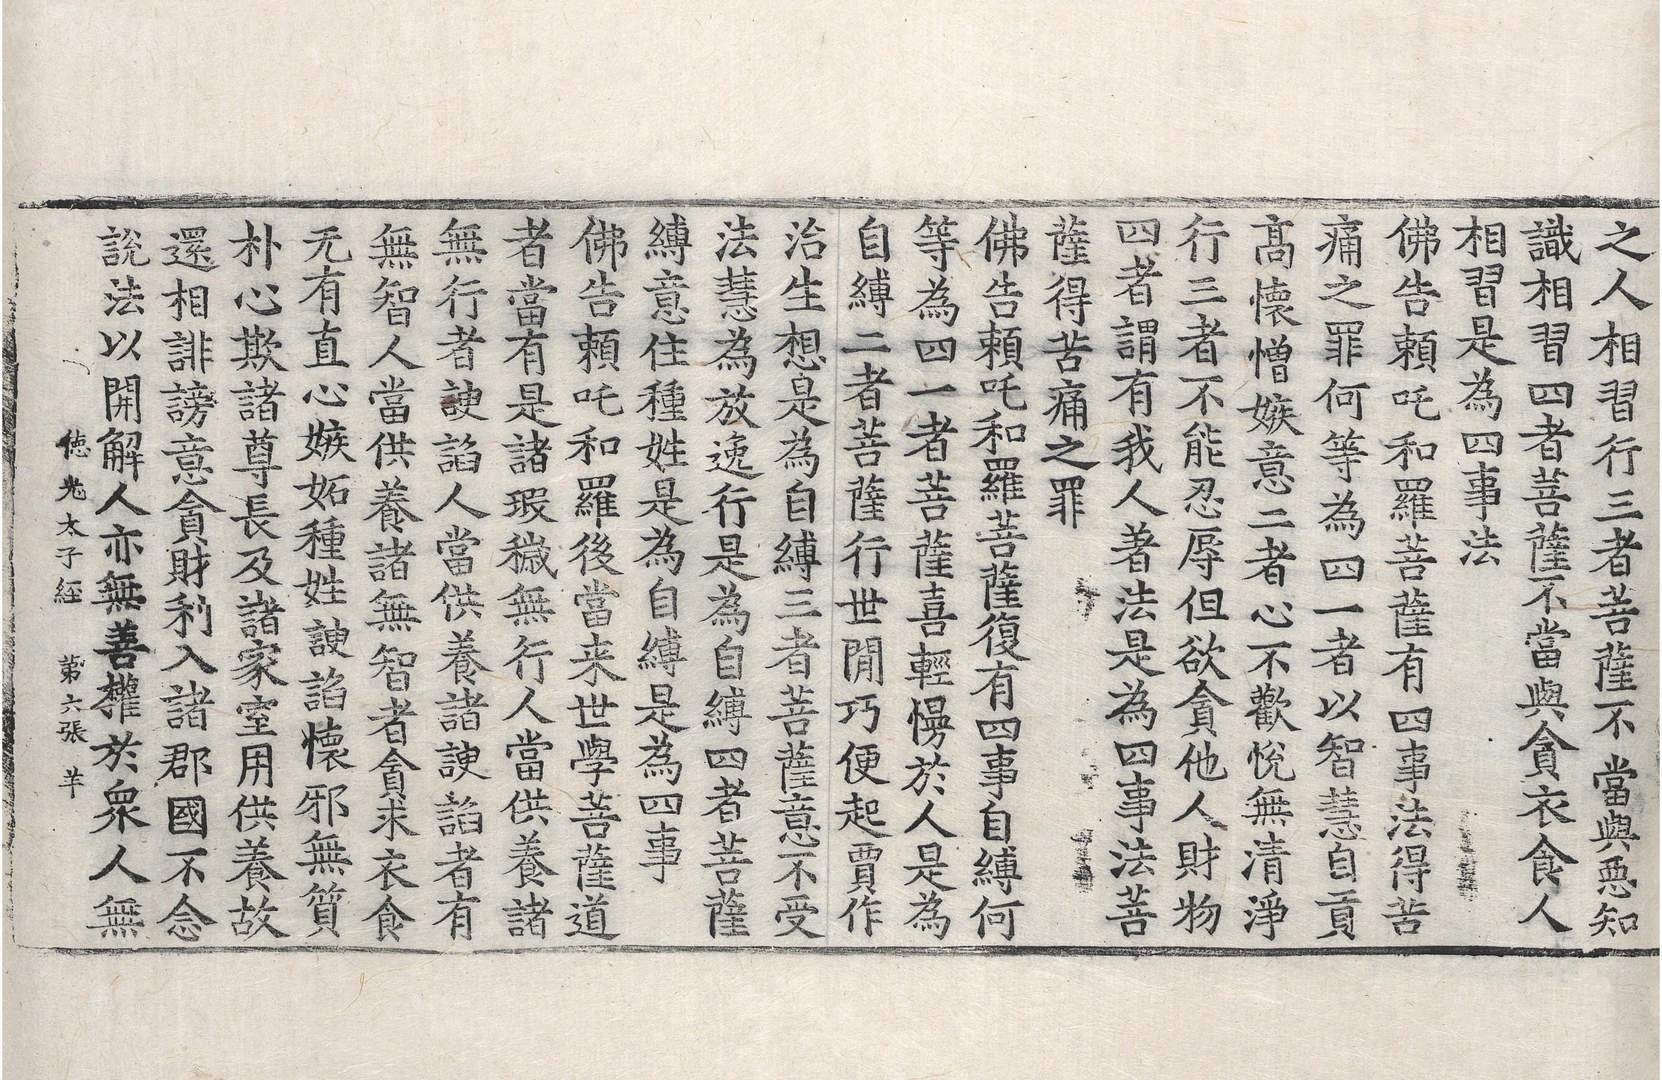 之人相習行三者菩薩不當與惡知
識相習四者菩薩不當與貪衣食人
相習是為四事法
佛告賴吒和羅菩薩有四事法得苦
痛之罪何等為四一者以智慧自貢
高懷憎嫉意二者心不歡悅無清淨
行三者不能忍辱但欲貪他人財物
四者謂有我人著法是為四事法菩
薩得苦痛之罪
佛告賴吒和羅菩薩復有四事自縛何
等為四一者菩薩喜輕慢於人是為
自縛二者菩薩行世閒巧便起賈作
治生想是為自縛三者菩薩意不受
法慧為放逸行是為自縛四者菩薩
縛意住種姓是為自縛是為四事
佛告賴吒和羅後當来世學菩薩道
者當有是諸瑕穢無行人當供養諸
無行者諛諂人當供養諸諛諂者有
無智人當供養諸無智者貪求衣食
无有直心嫉妬種姓諛諂懷邪無質
朴心欺諸尊長及諸家室用供養故
還相誹謗意貪財利入諸郡國不念
說法以開解人亦無善權於眾人無
德光太子經 第六張 羊